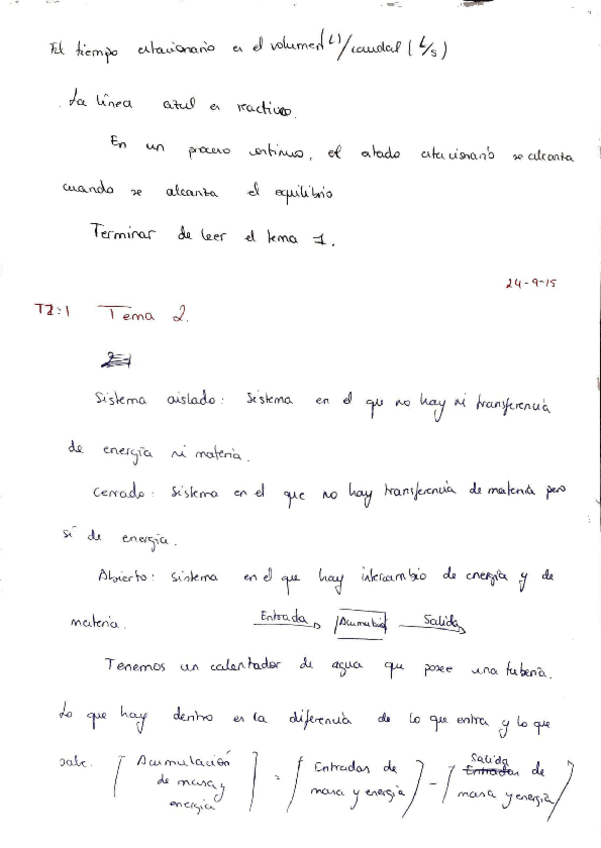 El tiempo estacionario es el volumen(L)/caudal (L/s)
. La línea azul es reactivo.
En un proceso continuo, el estado estacionario se alcanza
cuando se alcanza el equilibrio
Terminar de leer el tema 1.
24-9-15
T2:1 Tema 2.
Sistema aislado: Sistema en el que no hay ni transferencia
de energía ni materia.
Cerrado: Sistema en el que no hay transferencia de materia pero
sí de energía.
Abierto: Sistema en el que hay intercambio de energía y de
materia. Entrada Salida
Tenemos un calentador de agua que posee una tubería.
Lo que hay dentro es la diferencia de lo que entra y lo que
sale. [Acumulación de masa y energía] = [Entradas de masa y energía] - [Salida Entradas de masa y energía]